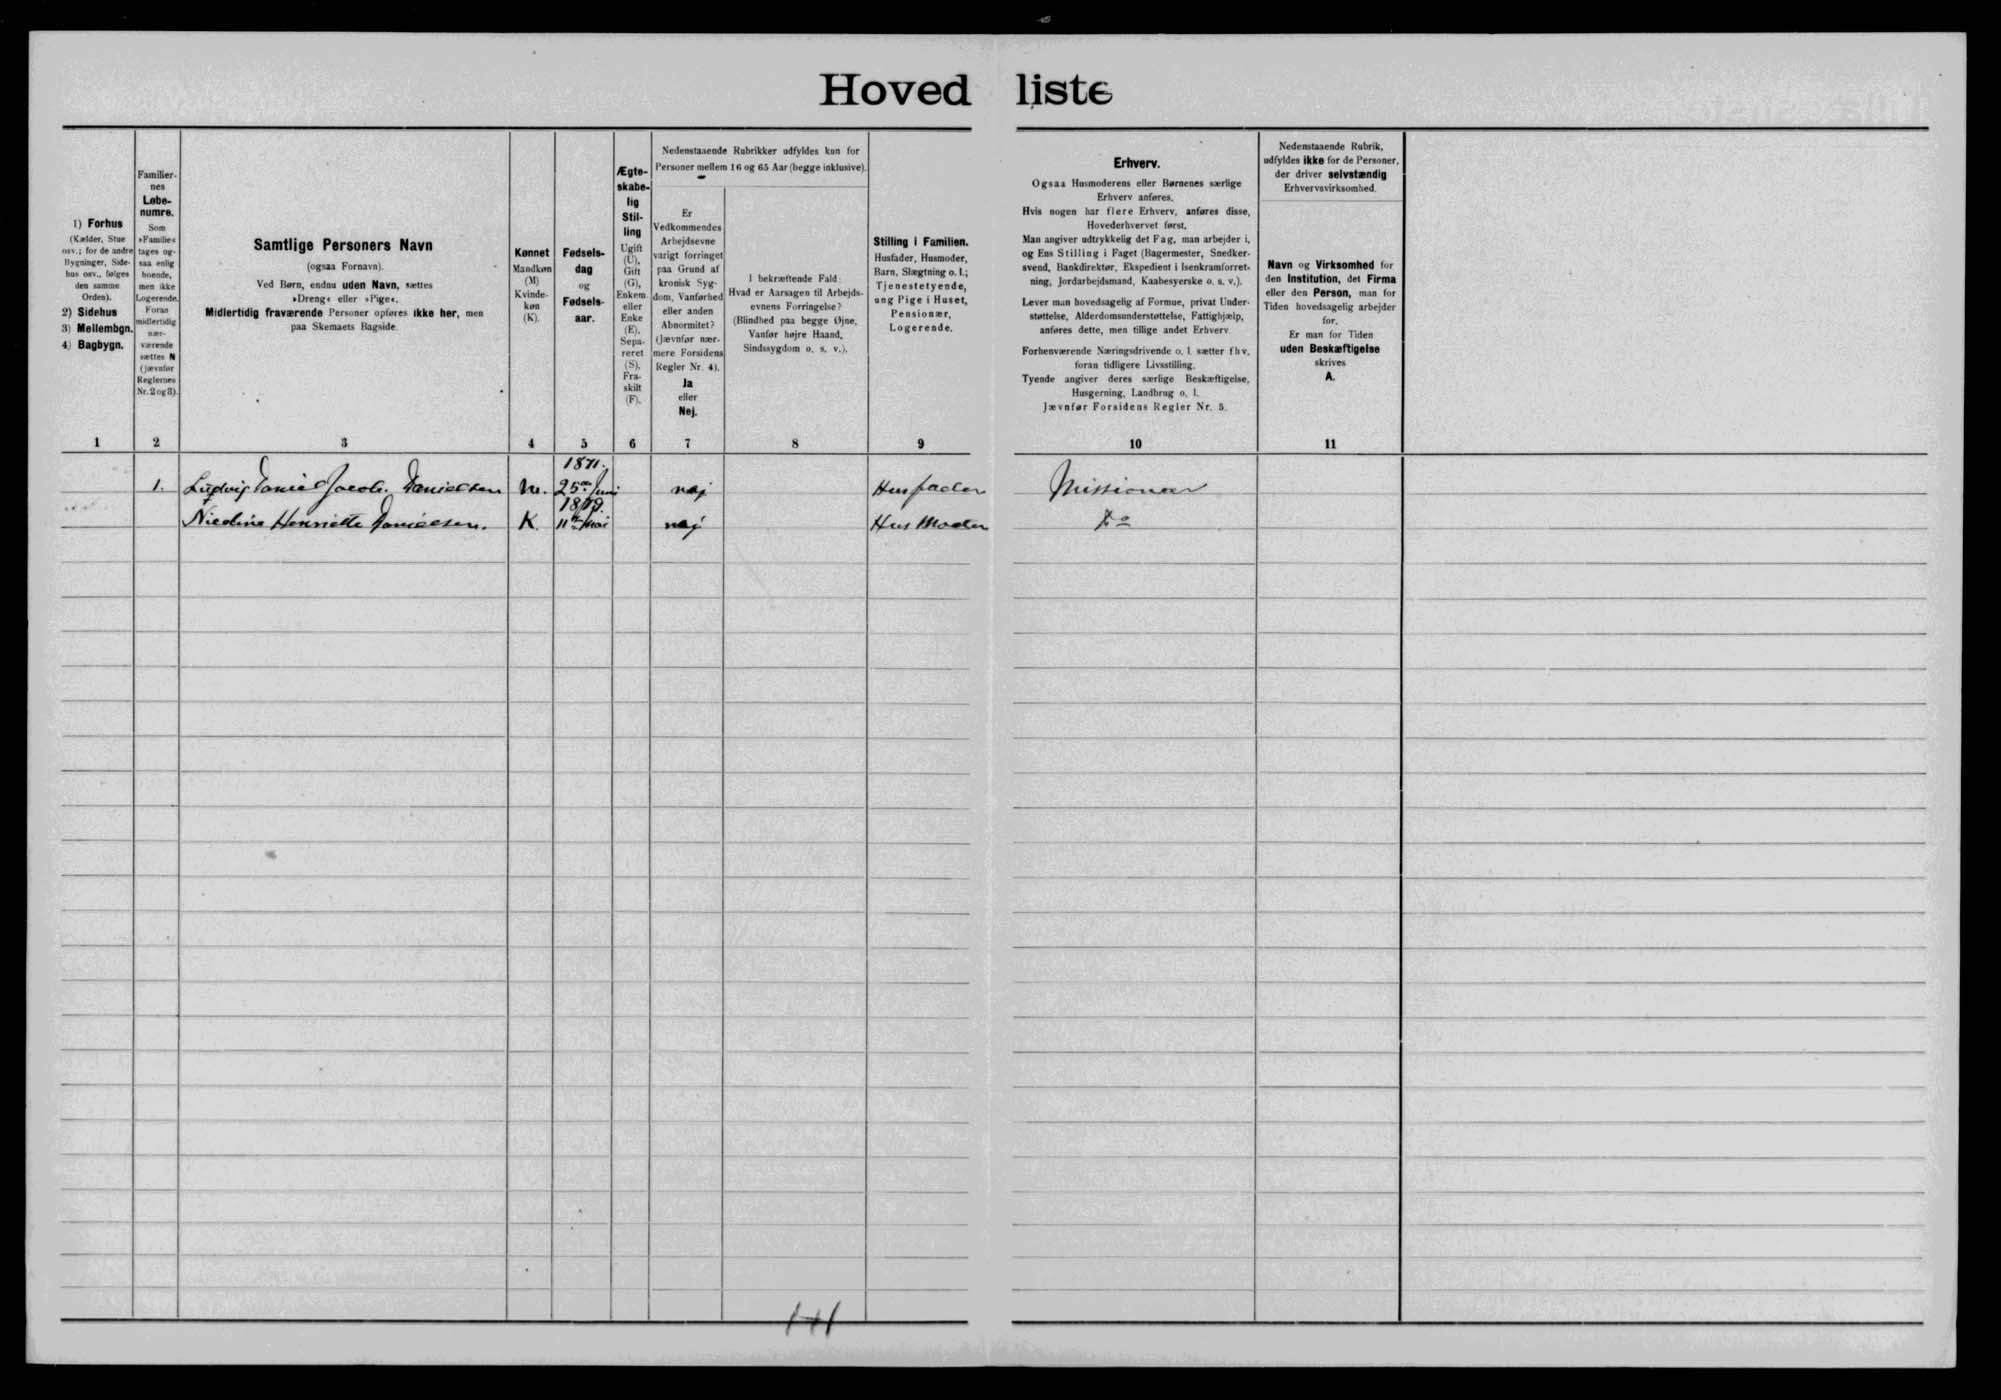 Hovedliste
1) Forhus
(Kælder, Stue
osv.; for de andre
Bygninger, Side-
hus osv., følges
den samme
Orden).
2) Sidehus
3) Mellembgn.
4) Bagbygn.
Familier-
nes
Løbe-
numre.
Som
»Familie«
tages og-
saa enlig
boende,
men ikke
Logerende.
Foran
midlertidig
nær-
værende
sættes N
(jævnfør
Reglernes
Nr. 2 og 3).
Samtlige Personers Navn
(ogsaa Fornavn).
Ved Børn, endnu uden Navn, sættes
»Dreng« eller »Pige«.
Midlertidig fraværende Personer opføres ikke her, men
paa Skemaets Bagside.
Kønnet
Mandkøn
(M)
Kvinde-
køn
(K).
Fødsels-
dag
og
Fødsels-
aar.
Ægte-
skabe-
lig
Stil-
ling
Ugift
(U),
Gift
(G),
Enkem.
eller
Enke
(E),
Sepa-
reret
(S),
Fra-
skilt
(F).
Nedenstaaende Rubrikker udfyldes kun for
Personer mellem 16 og 65 Aar (begge inklusive).
Er
Vedkommendes
Arbejdsevne
varigt forringet
paa Grund af
kronisk Syg-
dom, Vanførhed
eller anden
Abnormitet?
(Jævnfør nær-
mere Forsidens
Regler Nr. 4).
Ja
eller
Nej.
I bekræftende Fald:
Hvad er Aarsagen til Arbejds-
evnens Forringelse?
(Blindhed paa begge Øjne,
Vanfør højre Haand,
Sindssygdom o. s. v.).
Stilling i Familien.
Husfader, Husmoder,
Barn, Slægtning o. l.;
Tjenestetyende,
ung Pige i Huset,
Pensionær,
Logerende.
Erhverv.
Ogsaa Husmoderens eller Børnenes særlige
Erhverv anføres.
Hvis nogen har flere Erhverv, anføres disse,
Hovederhvervet først.
Man angiver udtrykkelig det Fag, man arbejder i,
og Ens Stilling i Faget (Bagermester, Snedker-
svend, Bankdirektør, Ekspedient i Isenkramforret-
ning, Jordarbejdsmand, Kaabesyerske o. s. v.).
Lever man hovedsagelig af Formue, privat Under-
støttelse, Alderdomsunderstøttelse, Fattighjælp,
anføres dette, men tillige andet Erhverv.
Forhenværende Næringsdrivende o. l. sætter fhv.
foran tidligere Livsstilling.
Tyende angiver deres særlige Beskæftigelse,
Husgerning, Landbrug o. l.
Jævnfør Forsidens Regler Nr. 5.
Nedenstaaende Rubrik,
udfyldes ikke for de Personer,
der driver selvstændig
Erhvervsvirksomhed.
Navn og Virksomhed for
den Institution, det Firma
eller den Person, man for
Tiden hovedsagelig arbejder
for.
Er man for Tiden
uden Beskæftigelse
skrives
A.
1 2 3 4 5 6 7 8 9 10 11
1871.
1. Ludvig Daniel Jacob. Danielsen M. 25de Juni nej Husfader Missionær
1879.
Nicoline Henriette Danielsen. K. 11te Mai nej Hus Moder Do
1+1